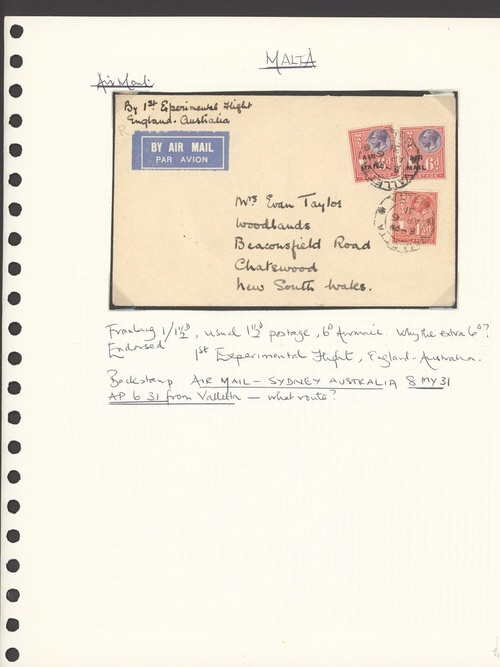 MALTA
Air Mail.
By 1st Experimental Flight
England-Australia
BY AIR MAIL
PAR AVION
AIR MAIL
6d
AIR MAIL
POSTAGE
Mrs Evan Taylor
Woodlands
Beaconsfield Road
Chatswood
New South Wales.
Franking 1/1½d, usual 1½d postage, 6d Airmail. Why the extra 6d?
Endorsed 1st Experimental Flight, England-Australia.
Backstamp AIR MAIL - SYDNEY AUSTRALIA 8 MY 31
AP 6 31 from Valletta - what route?